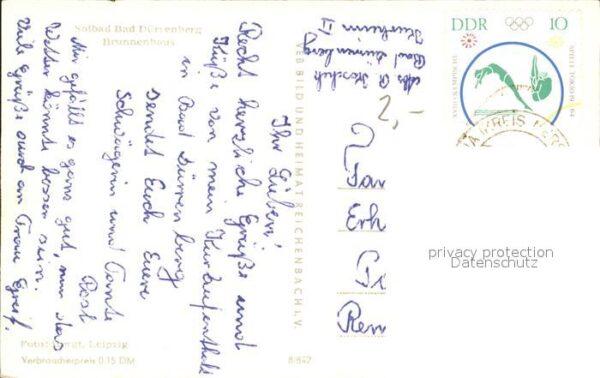 Solbad Bad Dürrenberg
Brunnenhaus
Ihr Lieben!
Recht herzliche Grüße und
Küße von mein Kuraufenthalt
in Bad Dürrenberg
sendet Euch Eure
Schwägerin und Tante
Mir gefällt es ganz gut, nur das
Wetter könnte besser sein.
Viele Grüße auch an Frau Greif.
Foto: Leipzig
Verbraucherpreis 0,15 DM
8/842
VEB BILD UND HEIMAT REICHENBACH I. V.
Bad Dürrenberg
Kurheim II
2,-
DDR
10
XVIII. OLYMPISCHE
SPIELE TOKIO 1964
KREIS
Fam
Erh
Ren
privacy protection
Datenschutz